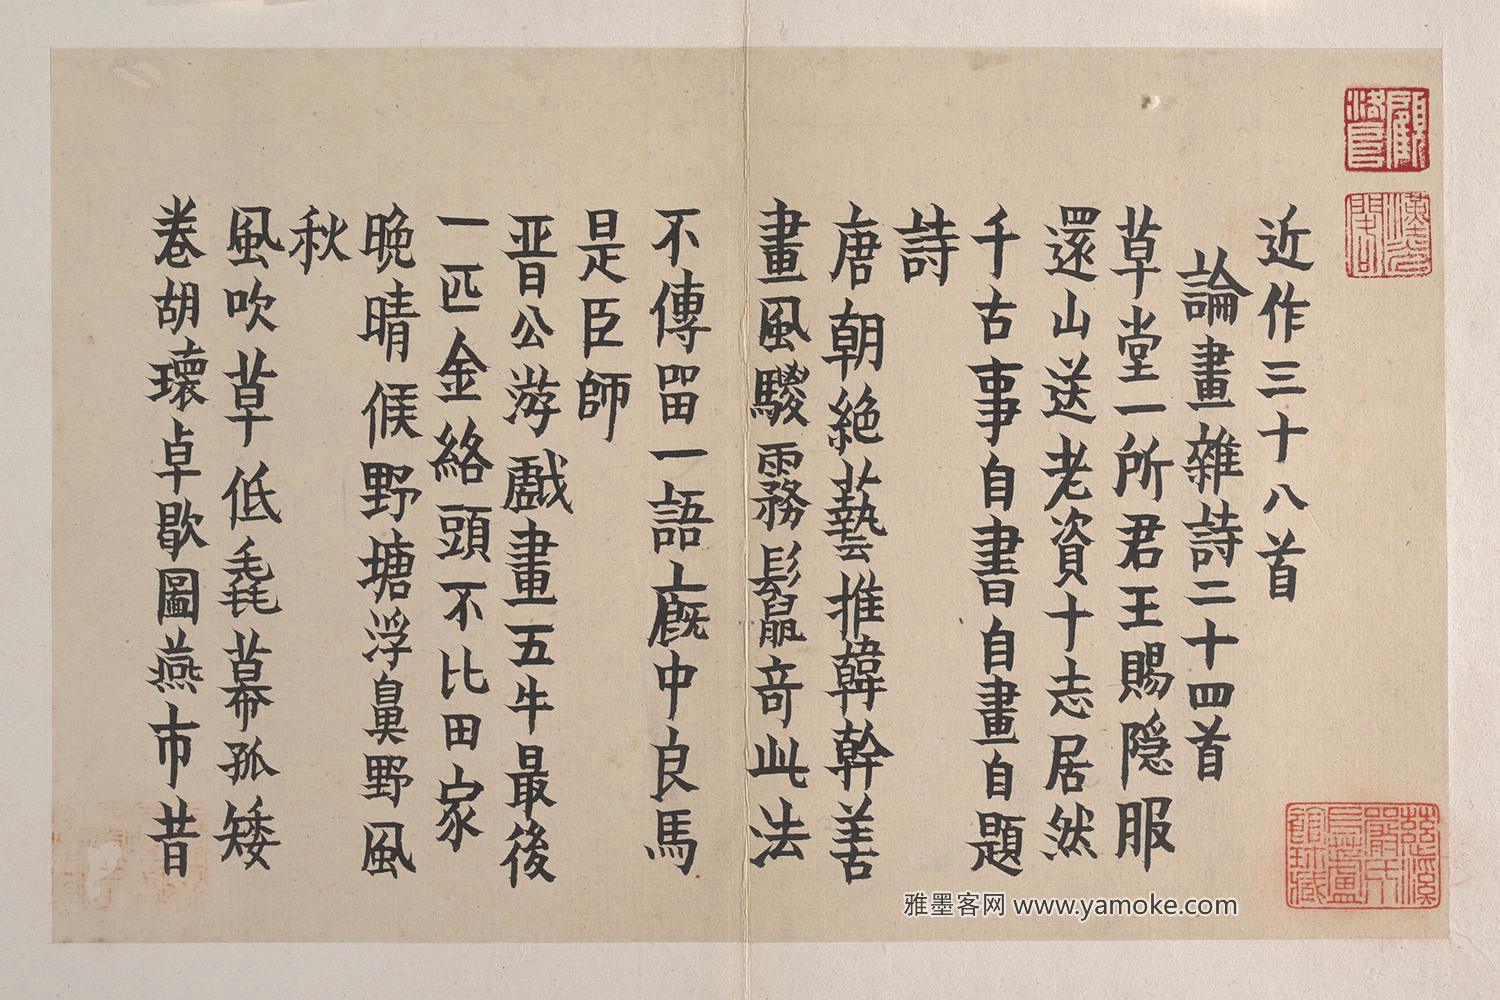 近作三十八首
論畫雜詩二十四首
草堂一所君王賜隐服
還山送老資十志居然
千古事自書自畫自題
詩
唐朝絶藝推韓幹善
畫風騣霧鬣奇此法
不傳留一語廐中良馬
是臣師
晋公游戲畫五牛最後
一匹金絡頭不比田家
晚晴候野塘浮鼻野風
秋
風吹草低毳幕孤矮
卷胡瓌卓歇圖燕市昔
雅墨客网 www.yamoke.com